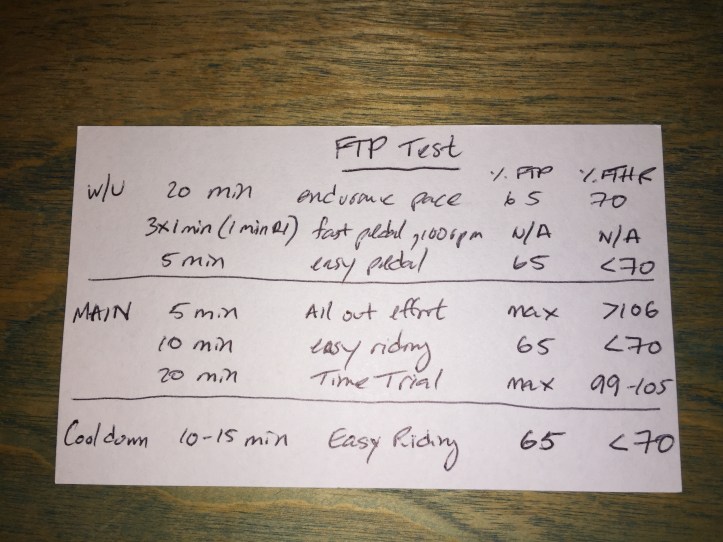 FTP Test
% FTP % FTHR
W/U 20 min endurance pace 65 70
3x1min (1 min RI) fast pedal, 100 rpm N/A N/A
5 min easy pedal 65 <70
MAIN 5 min All out effort max >106
10 min easy riding 65 <70
20 min Time Trial max 99-105
Cool down 10-15 min Easy Riding 65 <70